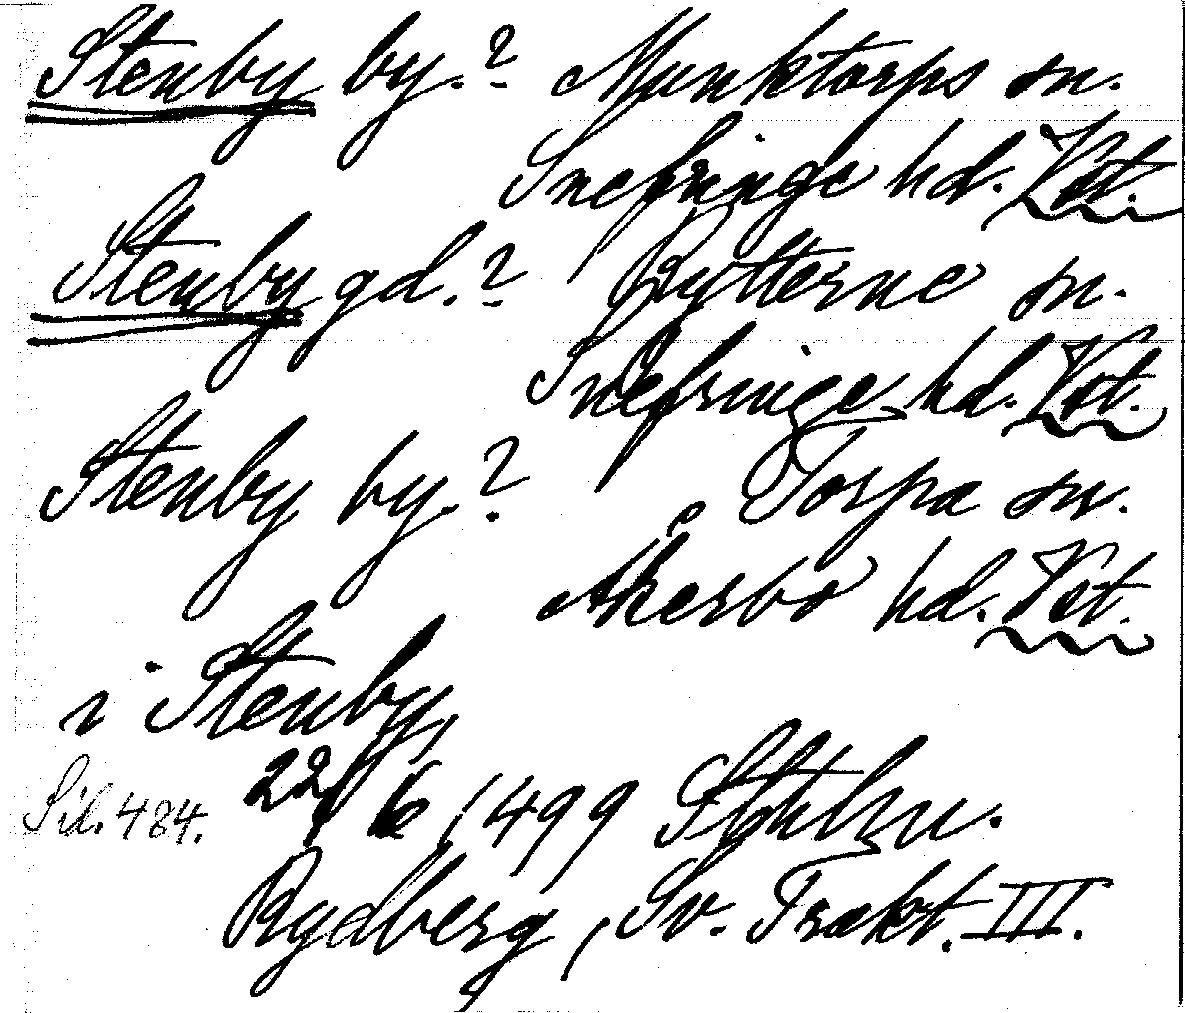 Stenby by.? Munktorps sn.
Snefringe hd. Vst.
Stenby gd.? Rytterne sn.
Snefringe hd. Vst.
Stenby by.? Torpa sn.
Åkerbo hd. Vst.
i Stenby,
Sid. 484. 22/6 1499 Sthlm.
Rydberg, Sv. Trakt. III.